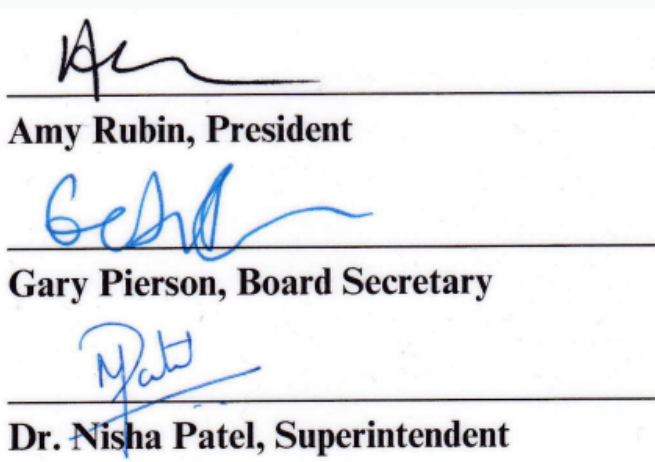 Amy Rubin, President
Gary Pierson, Board Secretary
NPatel
Dr. Nisha Patel, Superintendent